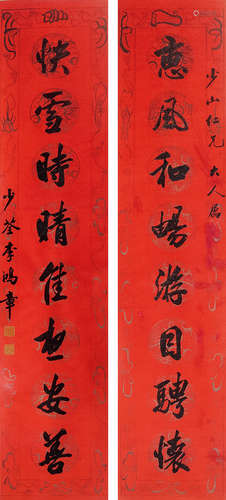 少山仁兄大人属
惠风和暢游目骋懷
快雪時晴佳想安善
少荃李鴻章